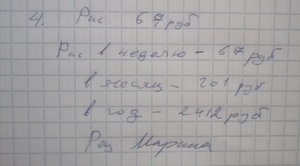 4. Рис. 67 руб
Рис в неделю - 67 руб
в месяц - 201 руб
в год - 2412 руб
Рец Марина